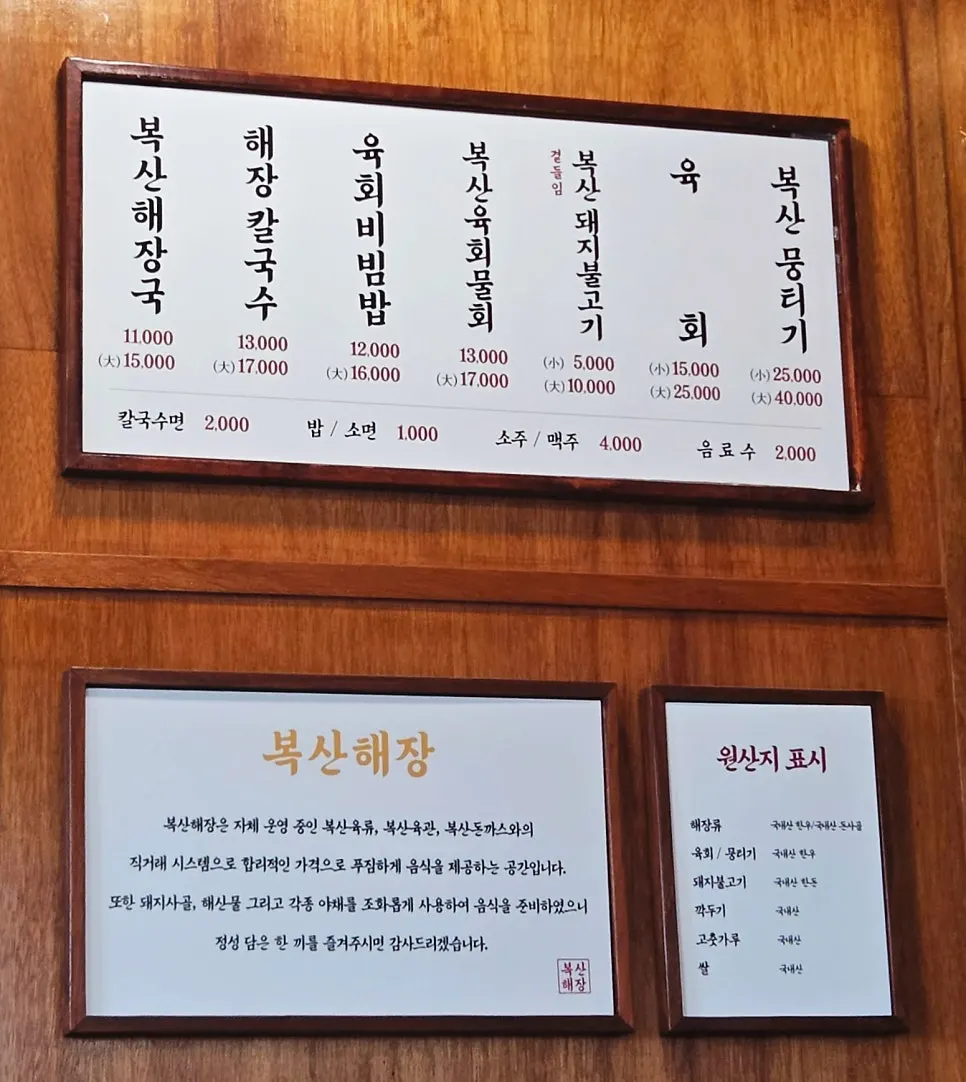 복산해장국
11,000
(大) 15,000
해장 칼국수
13,000
(大) 17,000
육회비빔밥
12,000
(大) 16,000
복산육회물회
13,000
(大) 17,000
곁들임
복산 돼지불고기
(小) 5,000
(大) 10,000
육회
(小) 15,000
(大) 25,000
복산 뭉티기
(小) 25,000
(大) 40,000
칼국수면 2,000 밥 / 소면 1,000 소주 / 맥주 4,000 음료수 2,000
복산해장
복산해장은 자체 운영 중인 복산육류, 복산육관, 복산돈까스와의
직거래 시스템으로 합리적인 가격으로 푸짐하게 음식을 제공하는 공간입니다.
또한 돼지사골, 해산물 그리고 각종 야채를 조화롭게 사용하여 음식을 준비하였으니
정성 담은 한 끼를 즐겨주시면 감사드리겠습니다.
복산
해장
원산지 표시
해장류 국내산 한우/국내산 돈사골
육회 / 뭉티기 국내산 한우
돼지불고기 국내산 한돈
깍두기 국내산
고춧가루 국내산
쌀 국내산